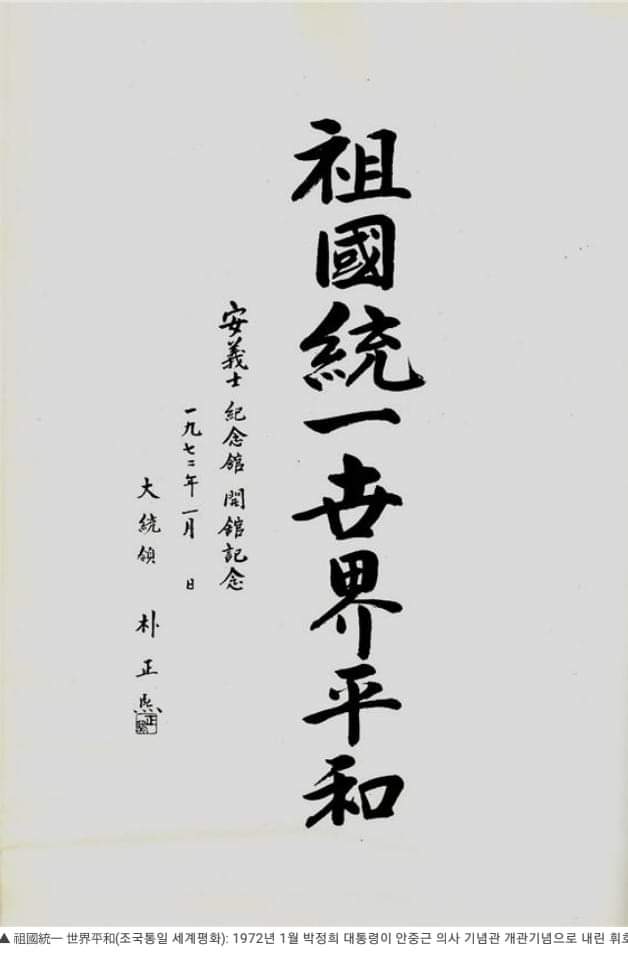 祖國統一世界平和
安義士 紀念館 開館記念
一九七二年 一月 日
大統領 朴正熙
▲ 祖國統一 世界平和(조국통일 세계평화): 1972년 1월 박정희 대통령이 안중근 의사 기념관 개관기념으로 내린 휘호